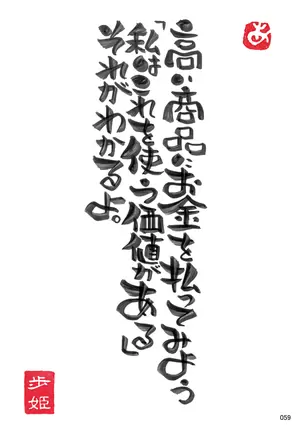 高い商品にお金を払ってみよう
「私はこれを使う価値がある」
それがわかるよ。
歩姫
059